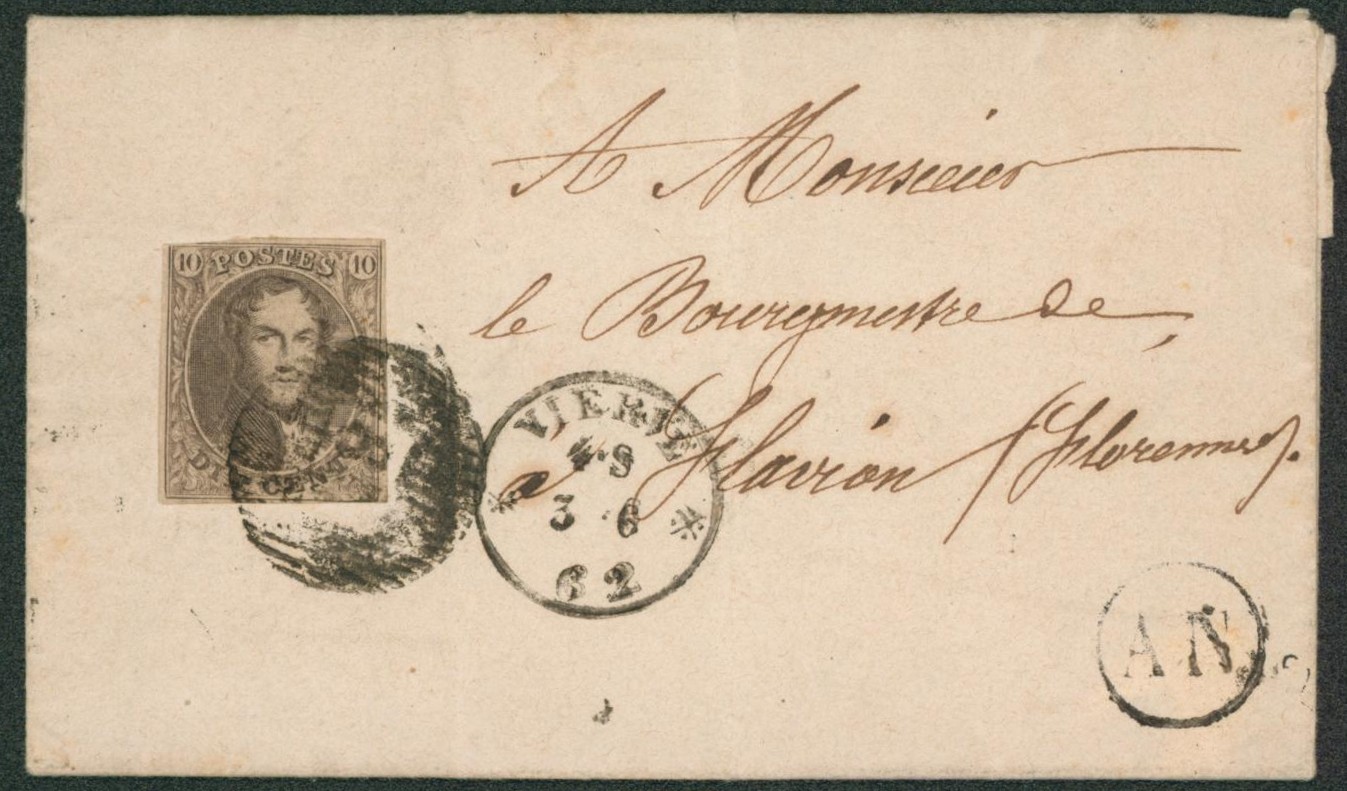 A Monsieur
le Bourgmestre de
à Flavion (Florennes).
10 POSTES 10
DIX CENTIMES
VIERVE
4·S
3 6
62
AN